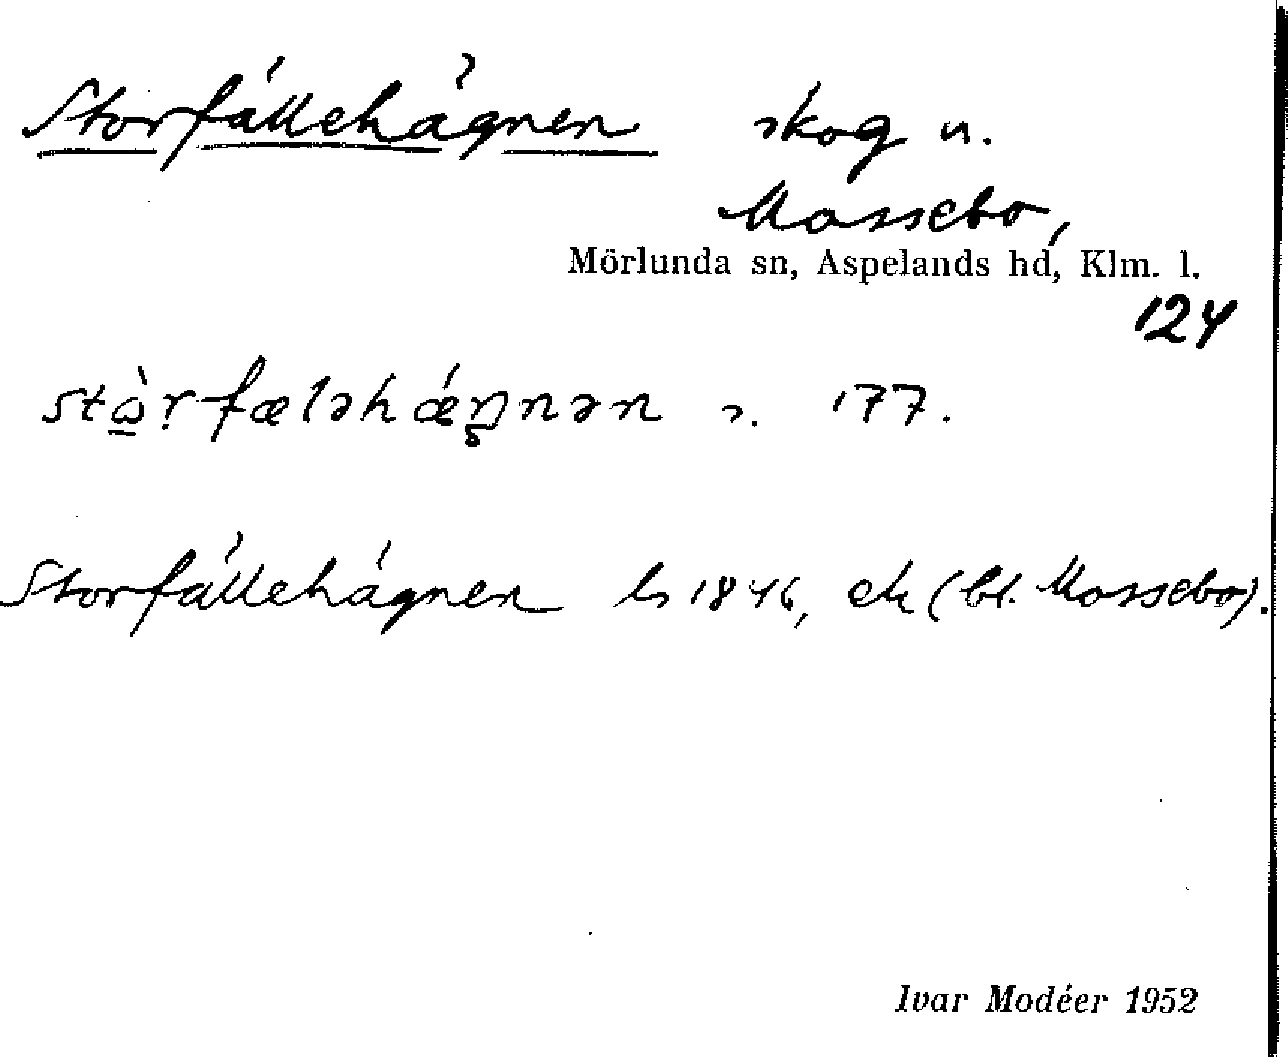 Storfällehägnen skog n.
Mossebo,
Mörlunda sn, Aspelands hd, Klm. l.
124
177.
Storfällehägnen ls 1846, ek (bl. Mossebo).
Ivar Modéer 1952